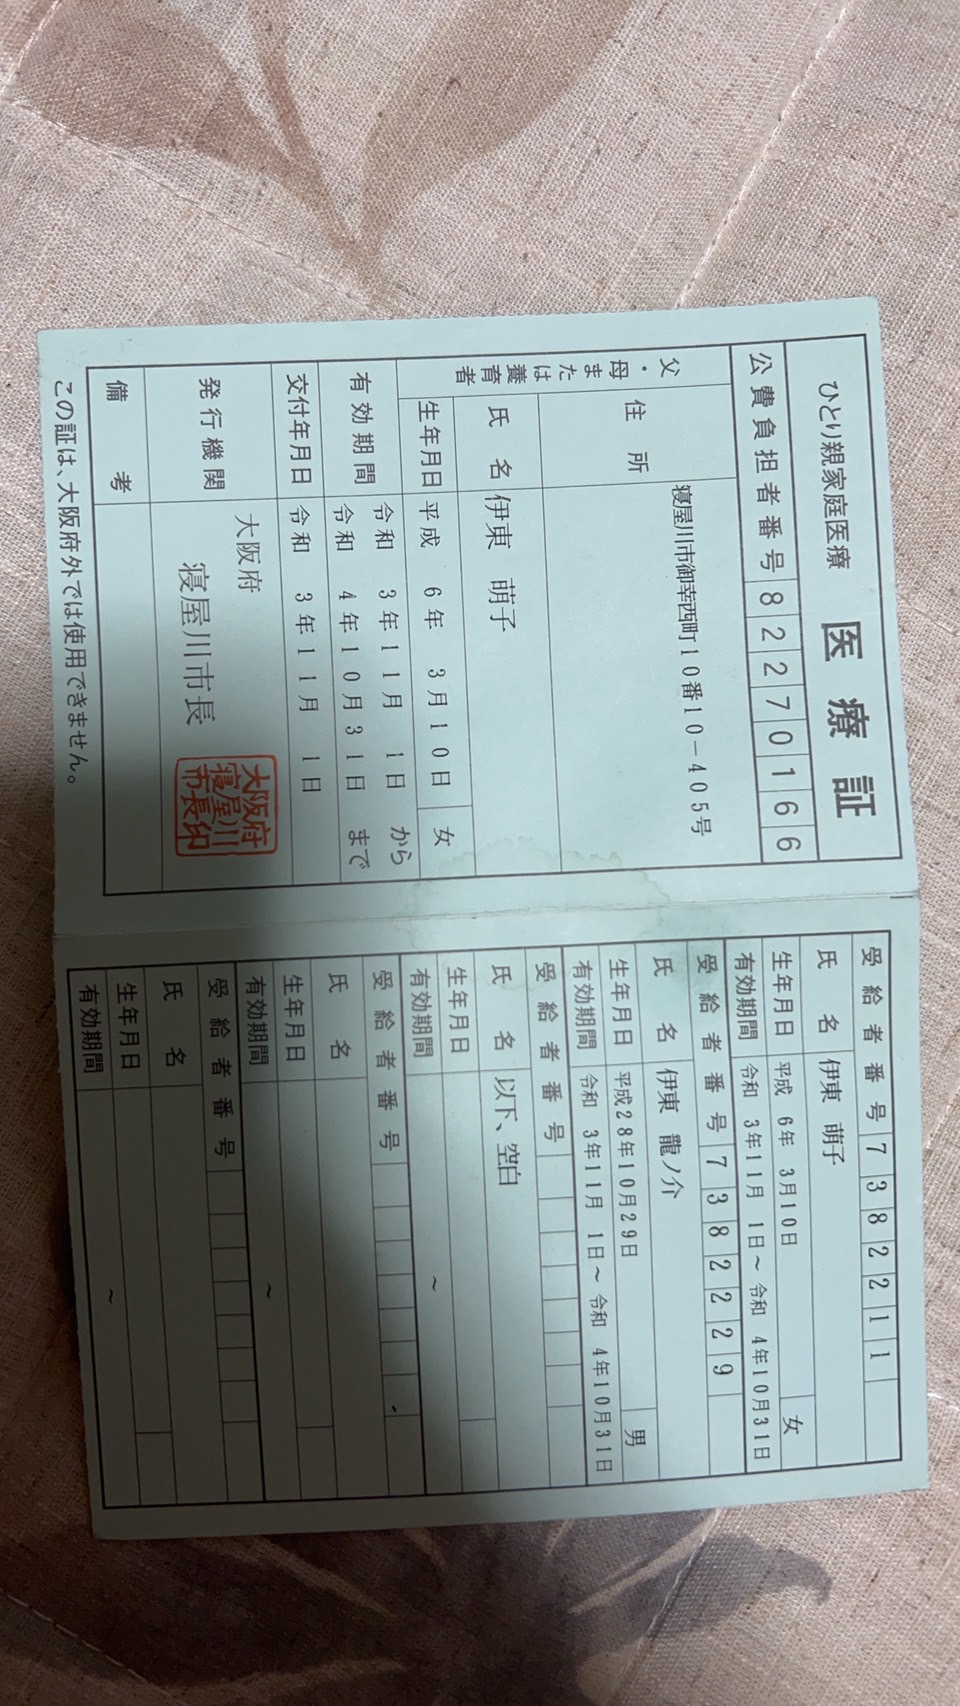 ひとり親家庭医療 医療証
公費負担者番号 82270166
父・母または養育者
住所 寝屋川市御幸西町10番10-405号
氏名 伊東 萌子
生年月日 平成 6年 3月10日 女
有効期間 令和 3年11月 1日 から
令和 4年10月31日 まで
交付年月日 令和 3年11月 1日
発行機関 大阪府
寝屋川市長
大阪府
寝屋川
市長印
備考
この証は、大阪府外では使用できません。
受給者番号 7382211
氏名 伊東 萌子
生年月日 平成 6年 3月10日 女
有効期間 令和 3年11月 1日~令和 4年10月31日
受給者番号 7382229
氏名 伊東 龍ノ介
生年月日 平成28年10月29日 男
有効期間 令和 3年11月 1日~令和 4年10月31日
受給者番号
氏名 以下、空白
生年月日
有効期間 ~
受給者番号
氏名
生年月日
有効期間 ~
受給者番号
氏名
生年月日
有効期間 ~